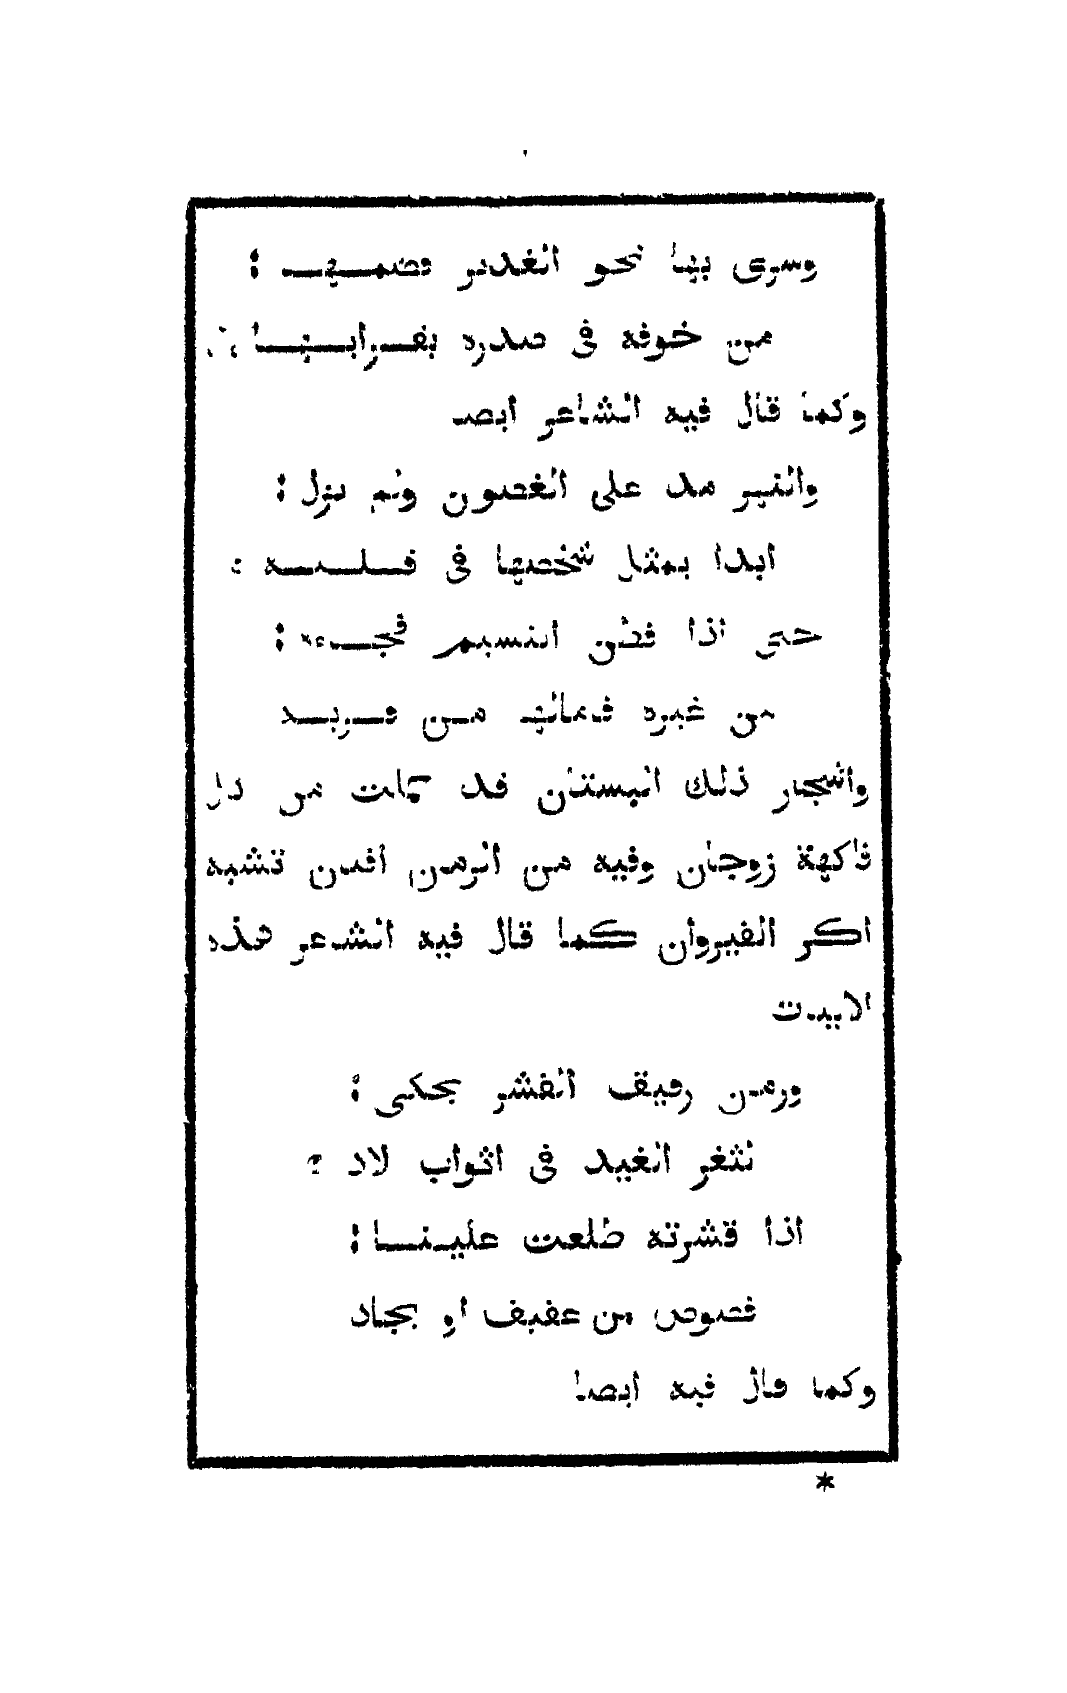 وسرى بها نحو الغدير فضمهــا :
من خوفه في صدره بقــرابــهــا
وكما قال فيه الشاعر ايضــا
والنهر مد على الغصون ولم يزل :
ابدا يمثل شخصها في قــلــبــه
حتى اذا فطن النسيم فجــاءه :
من غيره فامالها مــن قــربــه
واشجار ذلك البستان قد حملت من كل
فاكهة زوجان وفيه من الرمان افنان تشبه
اكر القيروان كما قال فيه الشاعر هذه
الابيات
ورمان رقيق القشر يحكى :
ثغر الغيد في اثواب لاد
اذا قشرته طلعت عليــنــا :
فصوص من عقيق او بجاد
وكما قال فيه ايضا
*